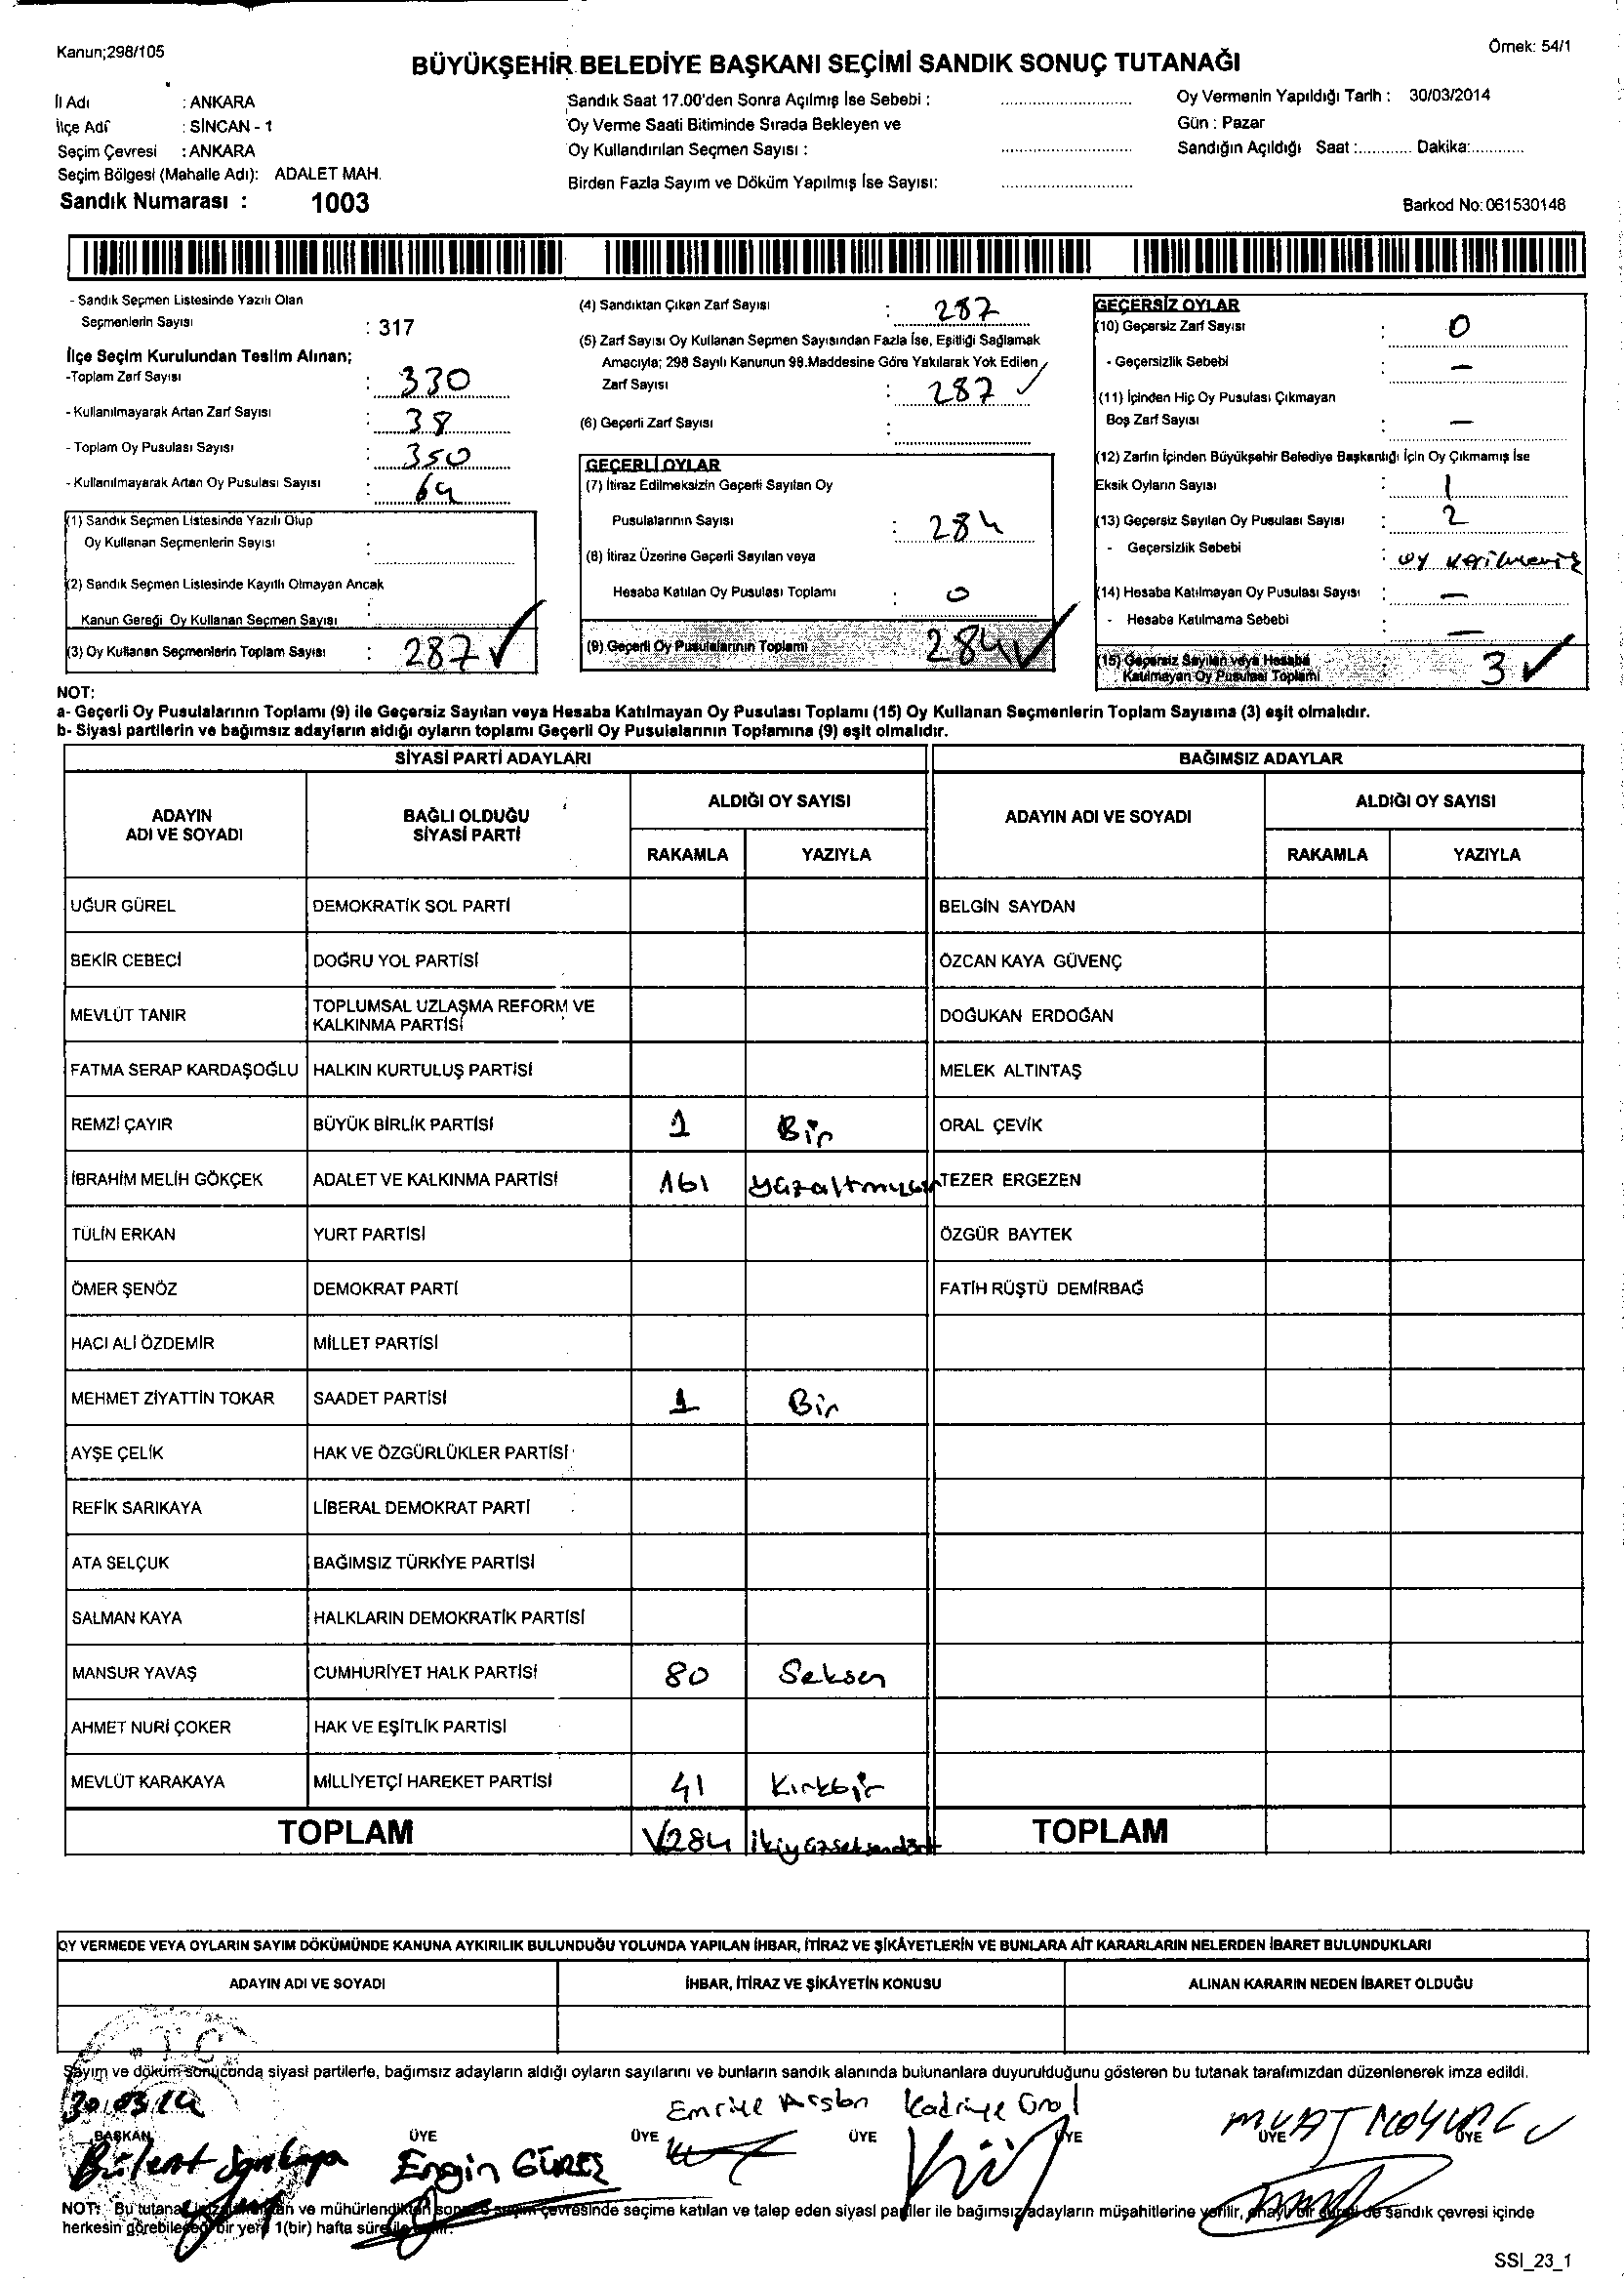 Kanun;298/105
Örnek: 54/1
BÜYÜKŞEHİR BELEDİYE BAŞKANI SEÇİMİ SANDIK SONUÇ TUTANAĞI
İl Adı : ANKARA
İlçe Adı : SİNCAN - 1
Seçim Çevresi : ANKARA
Seçim Bölgesi (Mahalle Adı): ADALET MAH.
Sandık Numarası : 1003
Sandık Saat 17.00'den Sonra Açılmış İse Sebebi :
Oy Verme Saati Bitiminde Sırada Bekleyen ve
Oy Kullandırılan Seçmen Sayısı :
Birden Fazla Sayım ve Döküm Yapılmış İse Sayısı:
Oy Vermenin Yapıldığı Tarih : 30/03/2014
Gün : Pazar
Sandığın Açıldığı Saat :............ Dakika:............
Barkod No: 061530148
- Sandık Seçmen Listesinde Yazılı Olan
Seçmenlerin Sayısı : 317
İlçe Seçim Kurulundan Teslim Alınan;
-Toplam Zarf Sayısı : 330
- Kullanılmayarak Artan Zarf Sayısı : 38
- Toplam Oy Pusulası Sayısı : 350
- Kullanılmayarak Artan Oy Pusulası Sayısı : 64
(1) Sandık Seçmen Listesinde Yazılı Olup
Oy Kullanan Seçmenlerin Sayısı :
(2) Sandık Seçmen Listesinde Kayıtlı Olmayan Ancak
Kanun Gereği Oy Kullanan Seçmen Sayısı :
(3) Oy Kullanan Seçmenlerin Toplam Sayısı : 287
(4) Sandıktan Çıkan Zarf Sayısı : 287
(5) Zarf Sayısı Oy Kullanan Seçmen Sayısından Fazla İse, Eşitliği Sağlamak
Amacıyla; 298 Sayılı Kanunun 98.Maddesine Göre Yakılarak Yok Edilen
Zarf Sayısı : 287
(6) Geçerli Zarf Sayısı :
GEÇERLİ OYLAR
(7) İtiraz Edilmeksizin Geçerli Sayılan Oy
Pusulalarının Sayısı : 284
(8) İtiraz Üzerine Geçerli Sayılan veya
Hesaba Katılan Oy Pusulası Toplamı : 0
(9) Geçerli Oy Pusulalarının Toplamı 284
GEÇERSİZ OYLAR
(10) Geçersiz Zarf Sayısı : 0
- Geçersizlik Sebebi : —
(11) İçinden Hiç Oy Pusulası Çıkmayan
Boş Zarf Sayısı : —
(12) Zarfın İçinden Büyükşehir Belediye Başkanlığı İçin Oy Çıkmamış İse
Eksik Oyların Sayısı : 1
(13) Geçersiz Sayılan Oy Pusulası Sayısı : 2
- Geçersizlik Sebebi : oy
(14) Hesaba Katılmayan Oy Pusulası Sayısı : —
- Hesaba Katılmama Sebebi : —
(15) Geçersiz Sayılan veya Hesaba
Katılmayan Oy Pusulası Toplamı : 3
NOT:
a- Geçerli Oy Pusulalarının Toplamı (9) ile Geçersiz Sayılan veya Hesaba Katılmayan Oy Pusulası Toplamı (15) Oy Kullanan Seçmenlerin Toplam Sayısına (3) eşit olmalıdır.
b- Siyasi partilerin ve bağımsız adayların aldığı oyların toplamı Geçerli Oy Pusulalarının Toplamına (9) eşit olmalıdır.
SİYASİ PARTİ ADAYLARI BAĞIMSIZ ADAYLAR
ADAYIN
ADI VE SOYADI
BAĞLI OLDUĞU
SİYASİ PARTİ
ALDIĞI OY SAYISI
RAKAMLA YAZIYLA
ADAYIN ADI VE SOYADI
ALDIĞI OY SAYISI
RAKAMLA YAZIYLA
UĞUR GÜREL DEMOKRATİK SOL PARTİ BELGİN SAYDAN
BEKİR CEBECİ DOĞRU YOL PARTİSİ ÖZCAN KAYA GÜVENÇ
MEVLÜT TANIR TOPLUMSAL UZLAŞMA REFORM VE
KALKINMA PARTİSİ DOĞUKAN ERDOĞAN
FATMA SERAP KARDAŞOĞLU HALKIN KURTULUŞ PARTİSİ MELEK ALTINTAŞ
REMZİ ÇAYIR BÜYÜK BİRLİK PARTİSİ 1 Bir ORAL ÇEVİK
İBRAHİM MELİH GÖKÇEK ADALET VE KALKINMA PARTİSİ 161 TEZER ERGEZEN
TÜLİN ERKAN YURT PARTİSİ ÖZGÜR BAYTEK
ÖMER ŞENÖZ DEMOKRAT PARTİ FATİH RÜŞTÜ DEMİRBAĞ
HACI ALİ ÖZDEMİR MİLLET PARTİSİ
MEHMET ZİYATTİN TOKAR SAADET PARTİSİ 1 Bir
AYŞE ÇELİK HAK VE ÖZGÜRLÜKLER PARTİSİ
REFİK SARIKAYA LİBERAL DEMOKRAT PARTİ
ATA SELÇUK BAĞIMSIZ TÜRKİYE PARTİSİ
SALMAN KAYA HALKLARIN DEMOKRATİK PARTİSİ
MANSUR YAVAŞ CUMHURİYET HALK PARTİSİ 80 Seksen
AHMET NURİ ÇOKER HAK VE EŞİTLİK PARTİSİ
MEVLÜT KARAKAYA MİLLİYETÇİ HAREKET PARTİSİ 41 Kırkbir
TOPLAM 284 ikiyüzseksendört TOPLAM
OY VERMEDE VEYA OYLARIN SAYIM DÖKÜMÜNDE KANUNA AYKIRILIK BULUNDUĞU YOLUNDA YAPILAN İHBAR, İTİRAZ VE ŞİKÂYETLERİN VE BUNLARA AİT KARARLARIN NELERDEN İBARET BULUNDUKLARI
ADAYIN ADI VE SOYADI İHBAR, İTİRAZ VE ŞİKÂYETİN KONUSU ALINAN KARARIN NEDEN İBARET OLDUĞU
T.C.
Sayım ve döküm sonucunda siyasi partilerle, bağımsız adayların aldığı oyların sayılarını ve bunların sandık alanında bulunanlara duyurulduğunu gösteren bu tutanak tarafımızdan düzenlenerek imza edildi.
30.03.14 Emine Arslan Kadriye
BAŞKAN ÜYE ÜYE ÜYE ÜYE ÜYE ÜYE
Bülent Engin GÜREŞ
NOT: Bu tutanak ve mühürlendikten sonra seçim çevresinde seçime katılan ve talep eden siyasi partiler ile bağımsız adayların müşahitlerine verilir, onaylı bir sureti de sandık çevresi içinde
herkesin görebileceği bir yere 1(bir) hafta süre ile
SSI_23_1